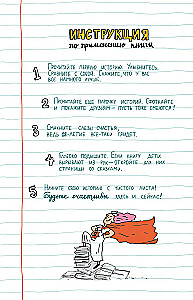 ИНСТРУКЦИЯ
по применению книги
1 Прочитайте первую историю. Улыбнитесь.
Сравните с собой. Скажите, что у вас
все намного лучше.
2 Прочитайте еще парочку историй. Сфоткайте
и покажите друзьям – пусть тоже смеются!
3 Смахните слезы счастья,
ведь 80-летие все-таки придет.
4 Глубоко подышите. Если книгу дети
вырывают из рук – откройте для них
страницы со сказками.
5 Начните свою историю с чистого листа!
Будьте счастливы здесь и сейчас!